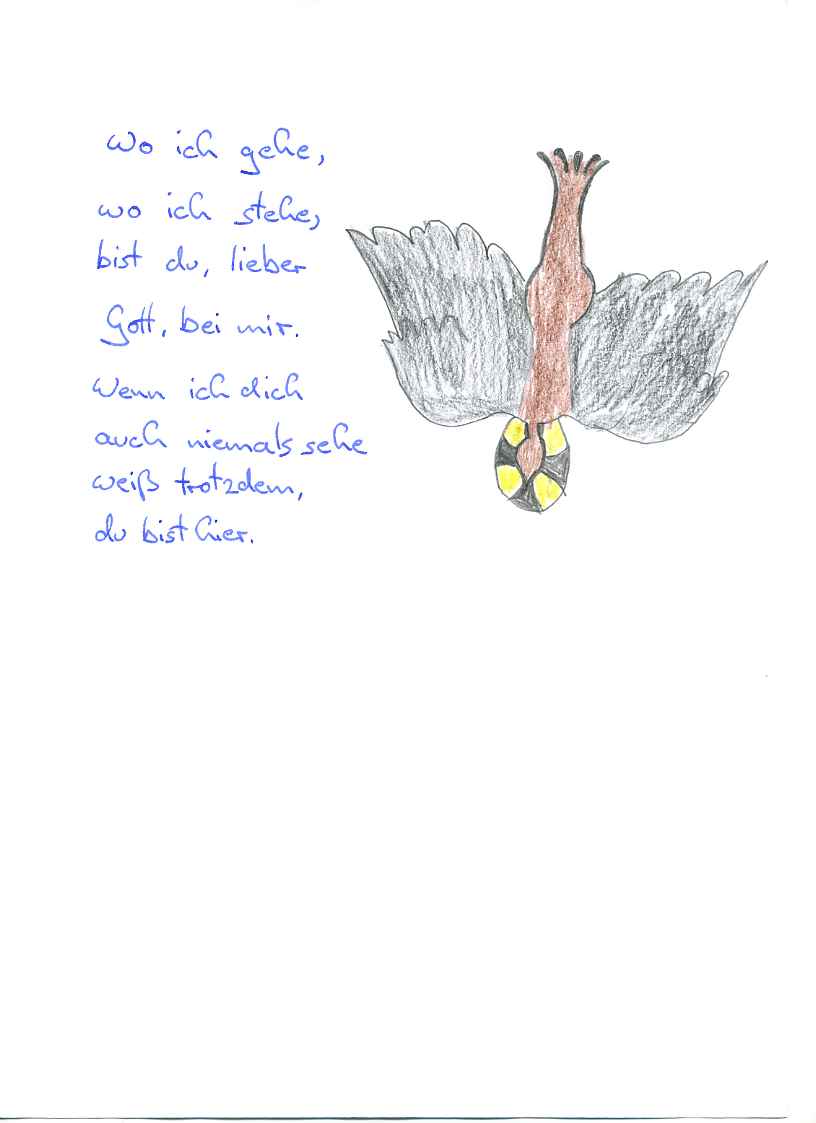 Wo ich gehe,
wo ich stehe,
bist du, lieber
Gott, bei mir.
Wenn ich dich
auch niemals sehe
weiß trotzdem,
du bist hier.